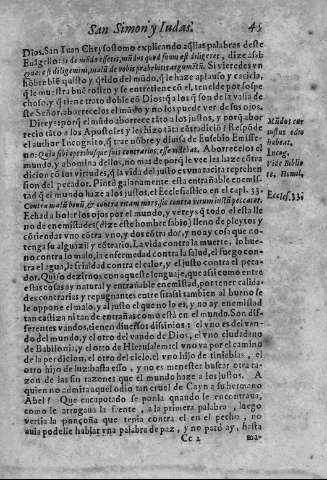 San Simon y Iudas. 45
Dios. San Iuan Chrysostomo explicando aq̃llas palabras deste
Euãgelio: si de mũdo essetis, mũdus quod suum est diligeret, dize assi:
Si vieredes vn
hõbre biẽ quisto y, q̃rido del mũdo, q̃ le haze aplauso y caricia,
q̃ le muestra buẽ rostro y se entretiene cõ el, tenelde por sospe
choso, y q̃ tiene trato doble cõ Dios: q̃ a los q̃ son de la valia de
ste Señor, aborrecelos el mũdo y no los puede ver de sus ojos.
Direys: por q̃ el mũdo aborrece tãto a los justos, y porq̃ abor
recio tãto a los Apostoles y les hizo tãta cõtradiciõ? Respõde
el author Incognito, q̃ trae nõbre y diuisa de Eusebio Emisse-
no: Quia sibi
Aborrecelos el
mundo, y abomina dellos, no mas de porq̃ le vee les haze cõtra
dicion cõ sus virtudes, q̃ la vida del justo es vna tacita reprehen
sion del pecador. Pintò galanamente esta entrañable enemis-
tad q̃ el mundo haze a los justos, el Ecclesiastico en el capi. 33.
Contra malũ bonũ, & contra vitam mors, sic contra virum iustũ peccator.
Echad a bolar los ojos por el mundo, y vereys q̃ todo el esta lle
no de enemistades (dize este hombre sabio) lleno de pleytos y
cõtiendas vno cõtra vno, y dos cõtra dos, y no ay cosa que no
tenga su algũ axil y cõtrario. La vida contra la muerte, lo bue-
no contra lo malo, la enfermedad contra la salud, el fuego con-
tra el agua, la frialdad contra el calor, y el justo contra el peca-
dor. Quiso dezirnos con aqueste lenguaje, que assi como entre
estas cosas ay natural y entrañable enemistad, por tener calida-
des contrarias y repugnantes entre si: assi tambien al bueno se
le oppone el malo, y al justo el que no lo es, y no ay enemistad
tan castiza ni tan de entrañas como està en el mundo. Son dif-
ferentes vandos, tienen diuersos disinios: el vno es del van-
do del mundo, y el otro del vando de Dios, el vno ciudadano
de Babilonia, y el otro de Hierusalem: el vno va por el camino
de la perdicion, el otro del cielo: el vno hijo de tinieblas, el
otro hijo de luz: basta esso, y no es menester buscar otra ra-
zon de las sin razones que el mundo haze a los justos. A
quien no admira aquel odio tan cruel de Cayn a su hermano
Abel? Que encapotado se ponia quando le encontraua,
como le arrugaua la frente, a la primera palabra, luego
vertia la ponçoña que tenia contra el en el pecho, no
auia podelle hablar vna palabra de paz, y no parò ay, hasta
Cc 2 ma-
Mũdus cur
iustus odio
habeat,
Incog.
Vide Biblio
te. Homil,
Eccles. 33.